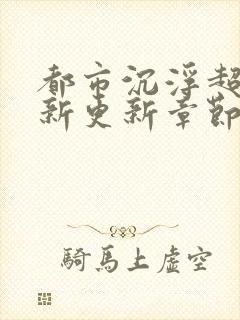 都市沉浮超
新更新章節
騎馬上虛空